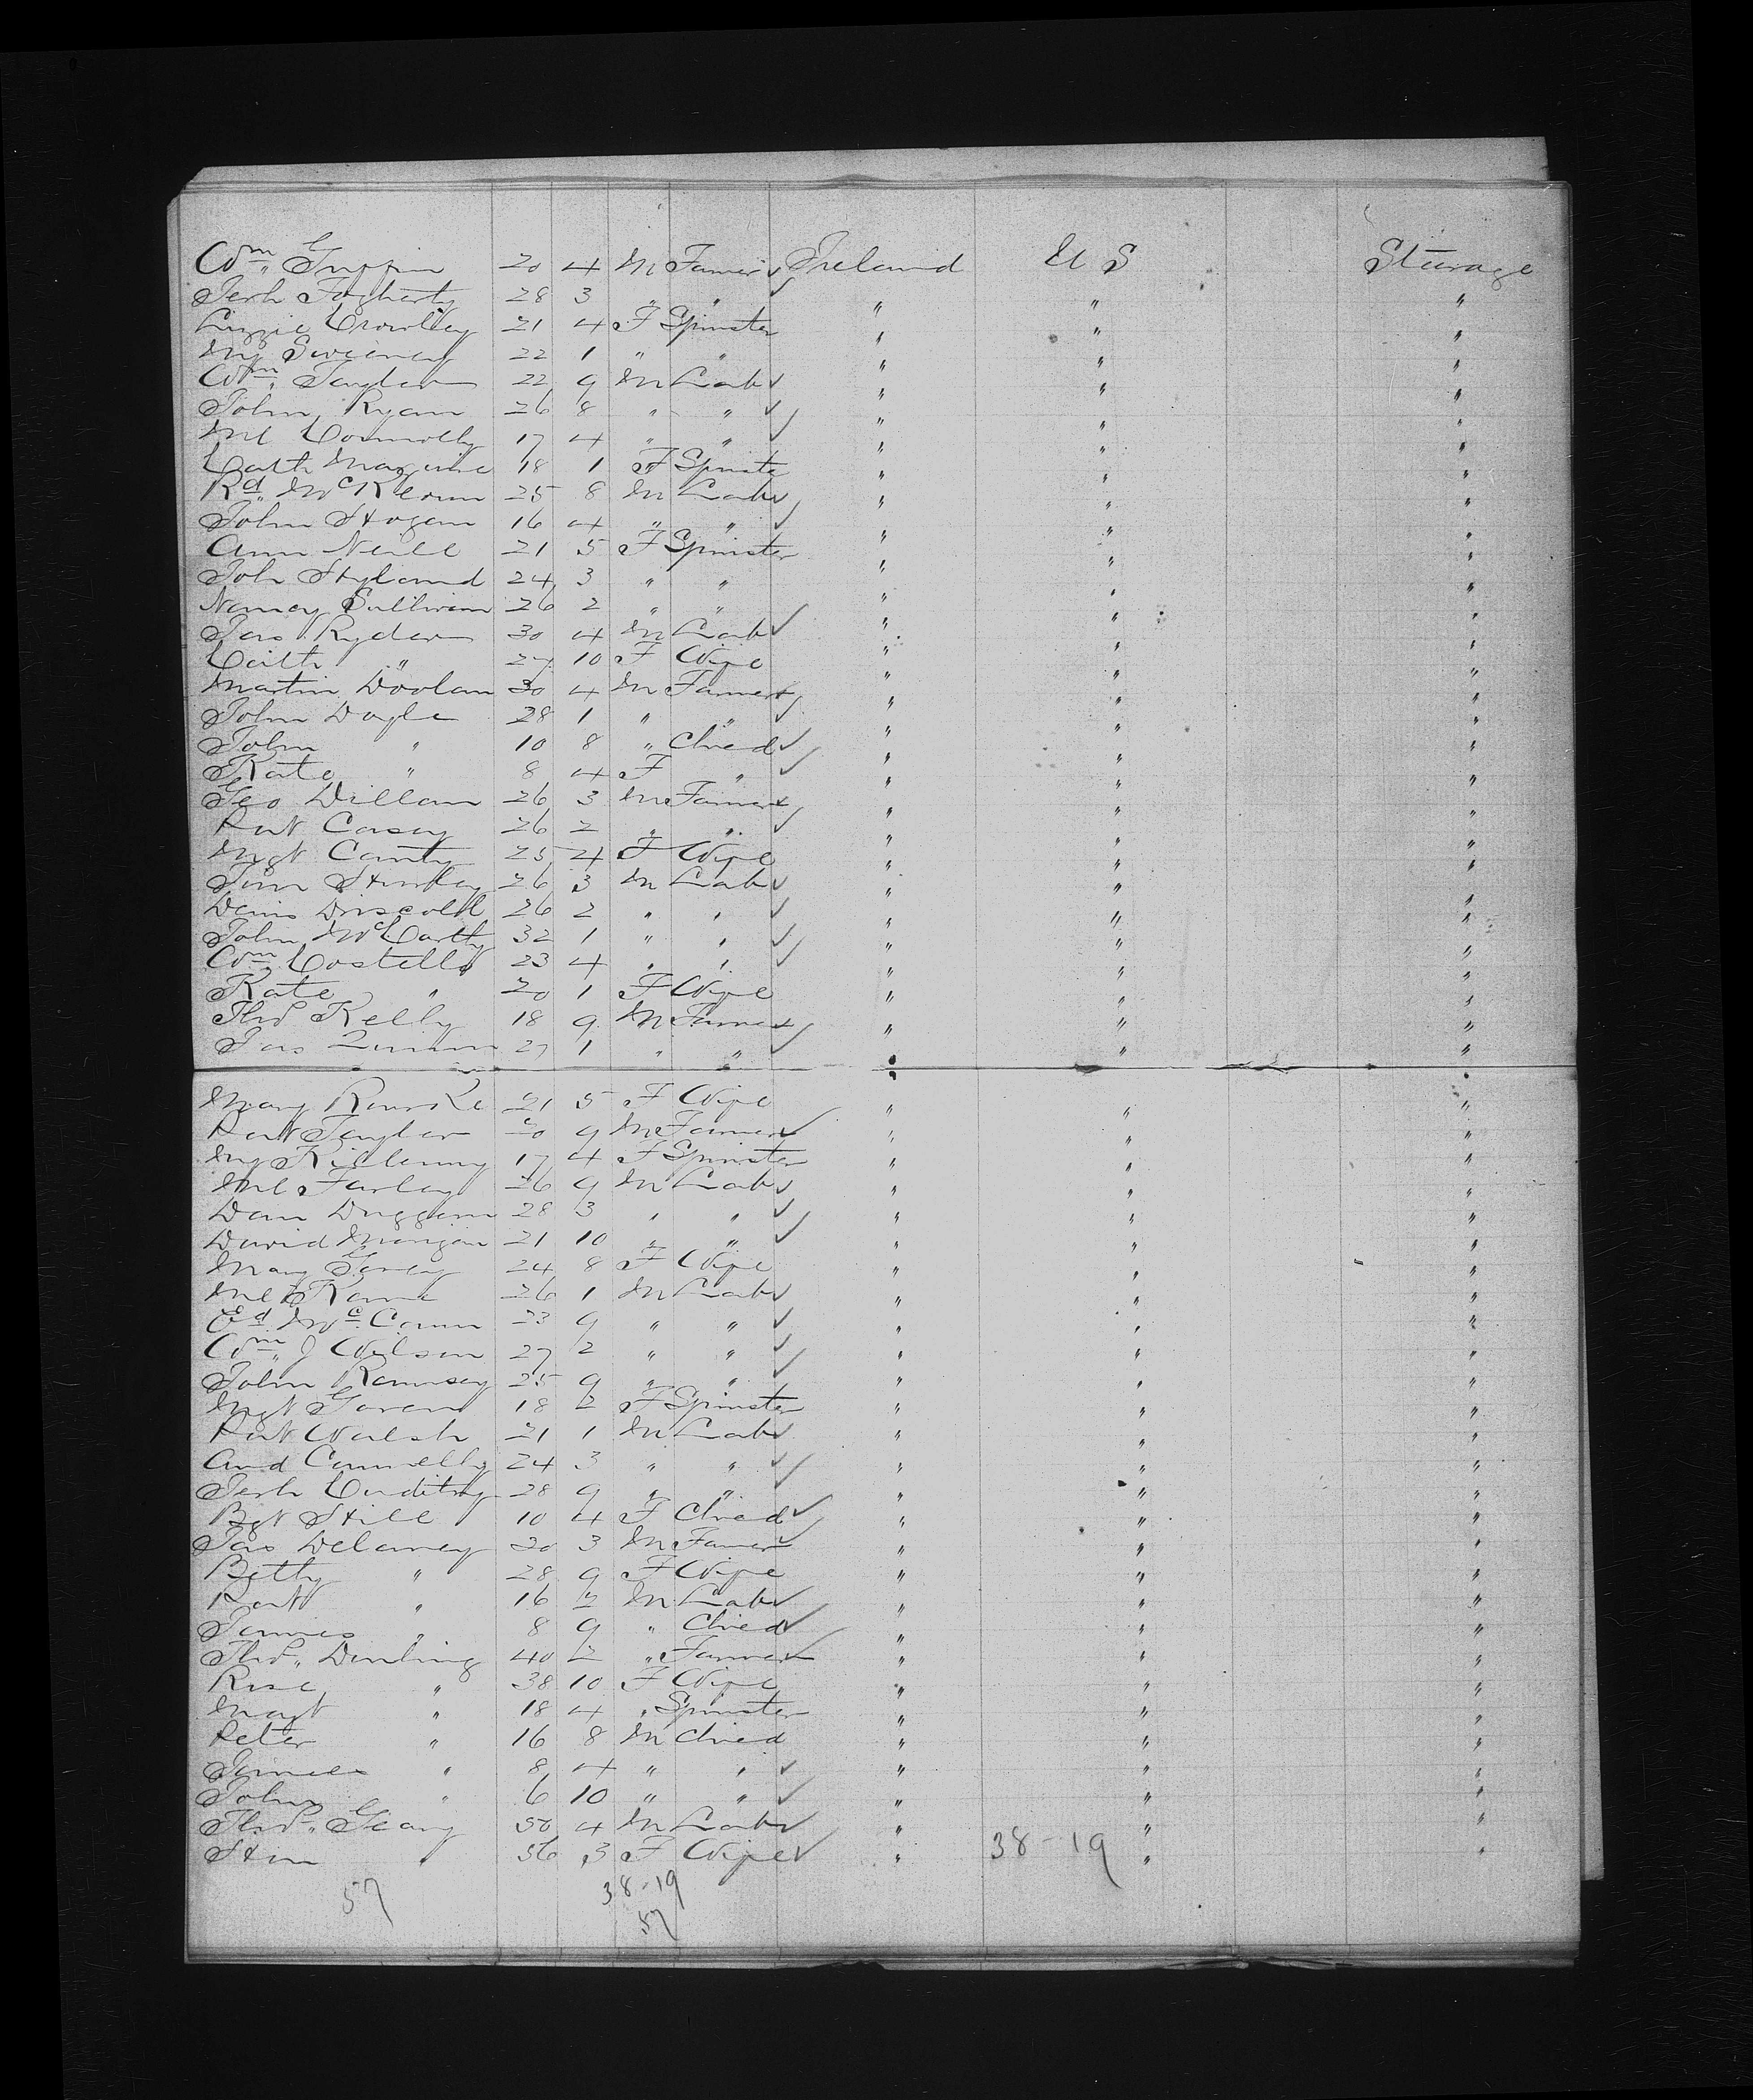 Wm Griffin 20 4 M Farmer Ireland U S Steerage
Jerh Fogherty 28 3 " " " " "
Lizzie Crowley 21 4 F Spinster " " "
My Sweeney 22 1 " " " " "
Wm Taylor 22 9 M Lab " " "
John Ryan 26 8 " " " " "
Ml Connolly 17 4 " " " " "
Cath Maguire 18 1 F Spinster " " "
Rd McKeown 25 8 M Lab " " "
John Hogan 16 4 " " " " "
Ann Neill 21 5 F Spinster " " "
Joh Hyland 24 3 " " " " "
Nancy Sullivan 26 2 " " " " "
Jas Ryder 30 4 M Lab " " "
Cath " 27 10 F Wife " " "
Martin Doolan 30 4 M Farmer " " "
John Doyle 28 1 " " " " "
John " 10 8 " Child " " "
Kate " 8 4 F " " " "
Geo Dillan 26 3 M Farmer " " "
Pat Casey 26 2 " " " " "
Mgt Canty 25 4 F Wife " " "
Tim Hurley 26 3 M Lab " " "
Denis Driscoll 26 2 " " " " "
John McCarthy 32 1 " " " " "
Wm Costello 23 4 " " " " "
Kate " 20 1 F Wife " " "
Thos Kelly 18 9 M Farmer " " "
Jas Quinn 27 1 " " " " "
Mary Rourke 21 5 F Wife " " "
Pat Taylor 20 9 M Farmer " " "
My Kilkenny 17 4 F Spinster " " "
Ml Farley 26 9 M Lab " " "
Dan Duggan 28 3 " " " " "
David Mangan 21 10 " " " " "
Mary 24 8 F Wife " " "
Ml Kane 26 1 M Lab " " "
Ed McCann 23 9 " " " " "
Wm J Wilson 27 2 " " " " "
John Ramsey 25 9 " " " " "
Mgt 18 2 F Spinster " " "
Pat Walsh 21 1 M Lab " " "
And Connelly 24 3 " " " " "
Jerh 28 9 " " " " "
Bgt Hill 10 4 F Child " " "
Jas Delaney 30 3 M Farmer " " "
Betty " 28 9 F Wife " " "
Pat " 16 2 M Lab " " "
James " 8 9 " Child " " "
Thos Dowling 40 2 " Farmer " " "
Rose " 38 10 F Wife " " "
Magt " 18 4 " Spinster " " "
Peter " 16 8 M Child " " "
James " 8 4 " " " " "
John " 6 10 " " " " "
Thos Geary 50 4 M Lab " " "
Han " 56 3 F Wife " 38-19 " "
57 38-19
57